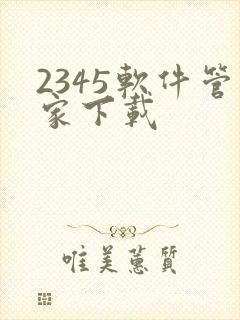 2345軟件管
家下載
唯美蕙質